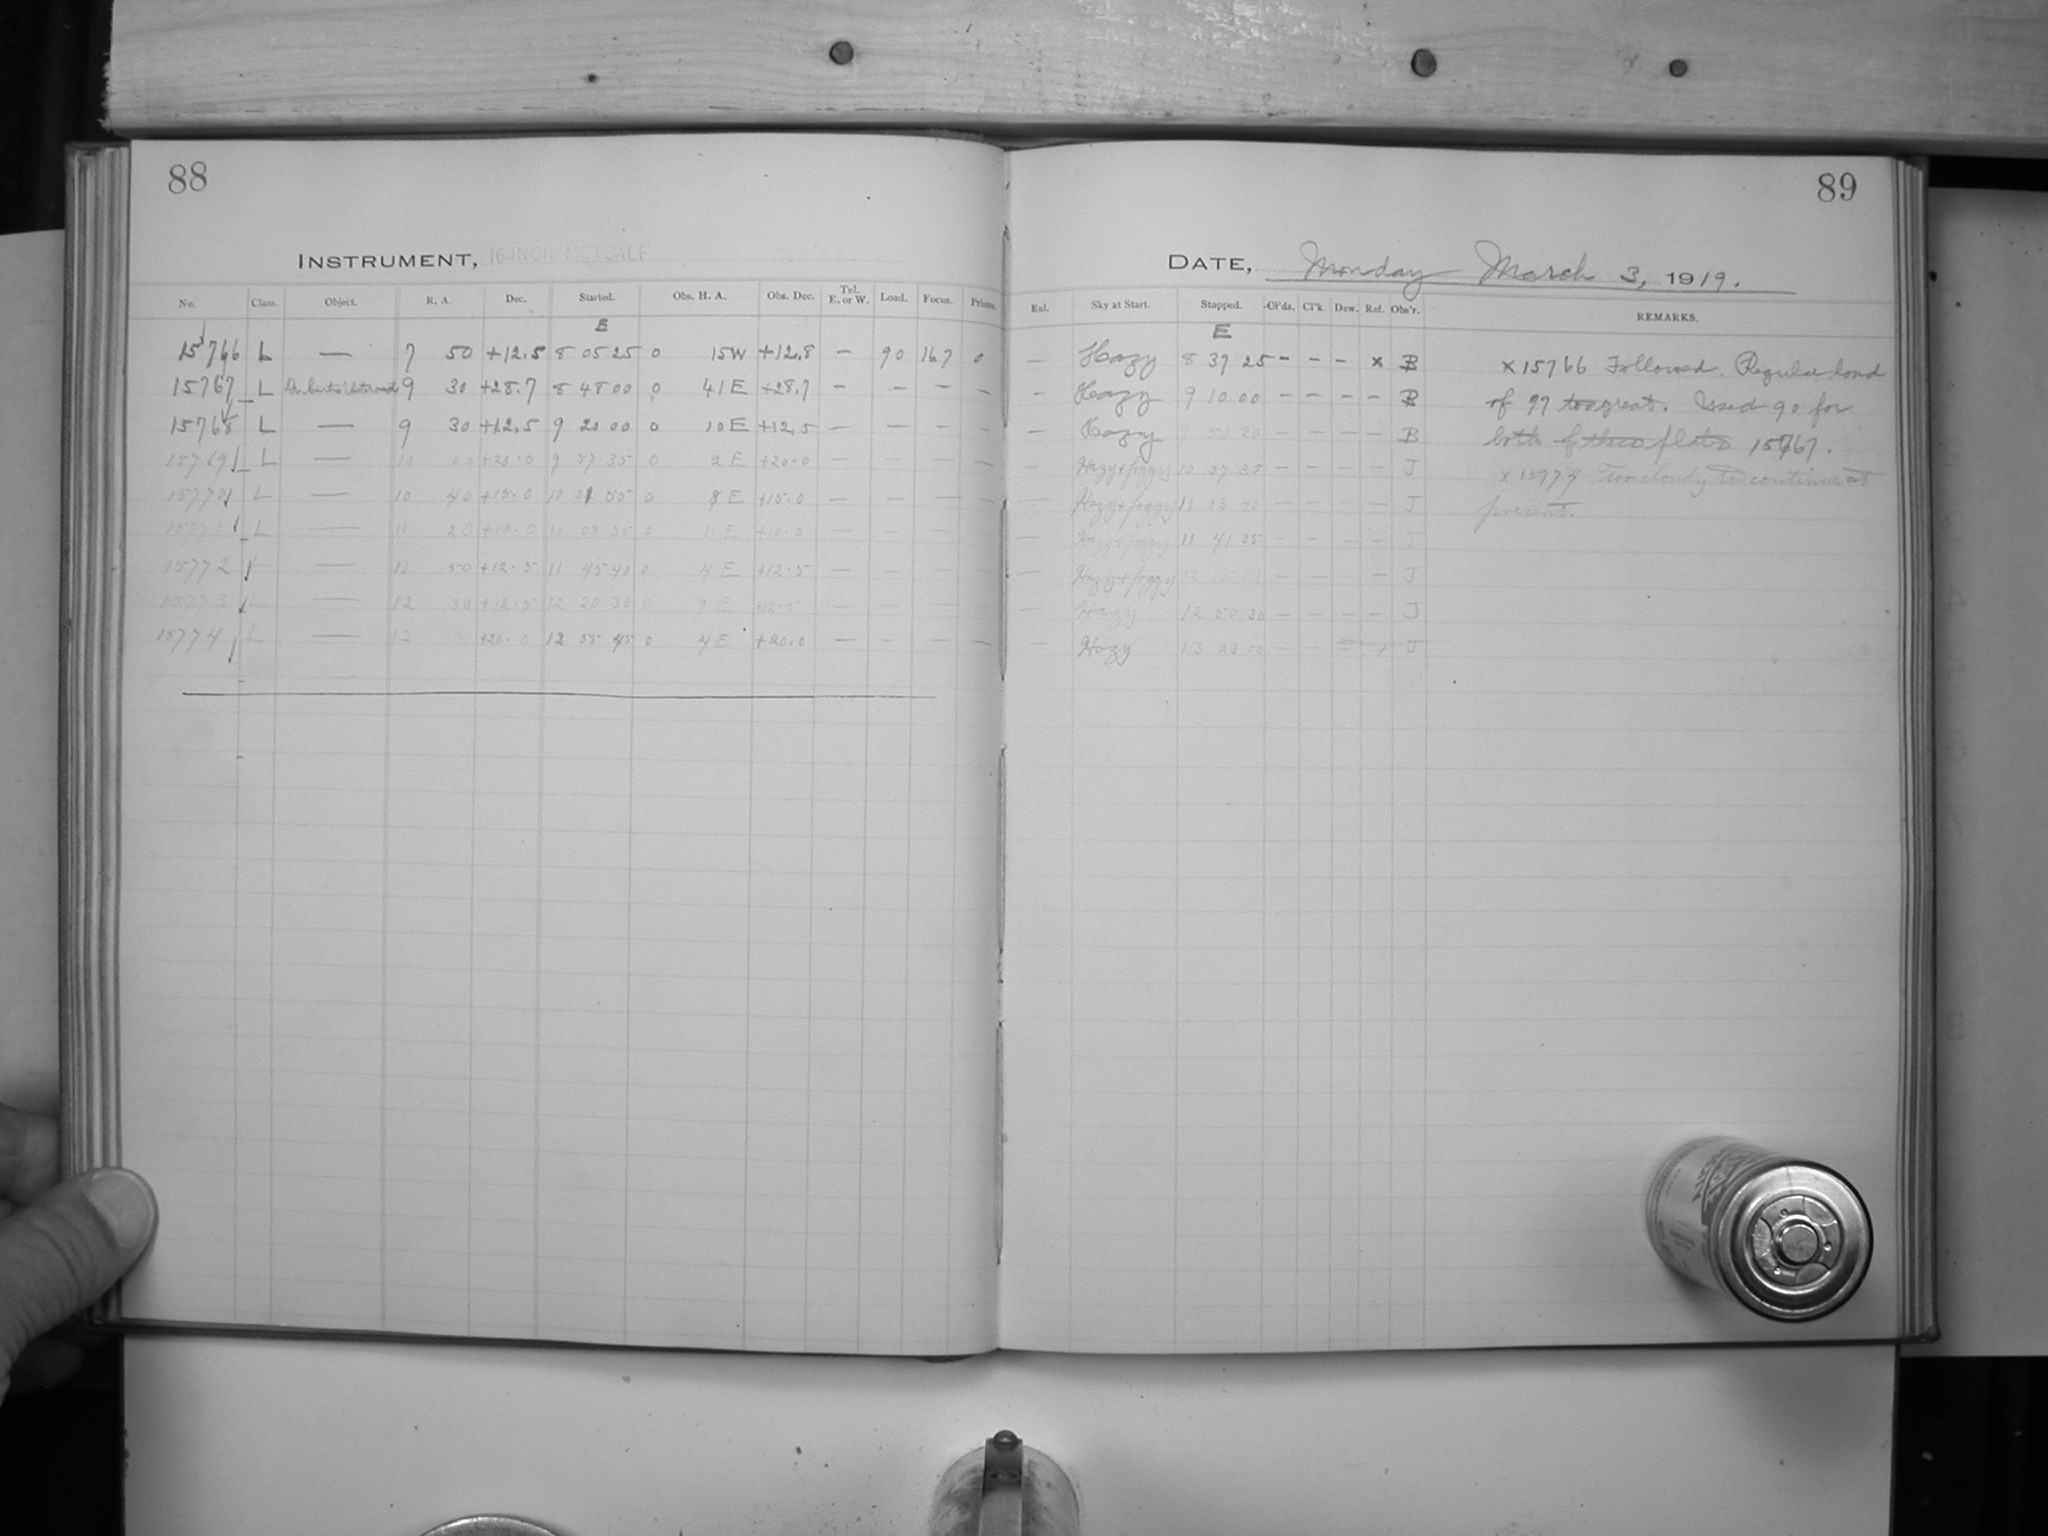 88
89
INSTRUMENT, 16-INCH METCALF
DATE, Monday March 3, 1919.
No. Class. Object. R. A. Dec. Started. Obs. H. A. Obs. Dec. Tel. E. or W. Load. Focus. Prisms.
Enl. Sky at Start. Stopped. Cl'ds. Cl'k Dew. Ref. Obs'r. REMARKS.
E
E
15766 L — 7 50 +12.5 8 05 25 0 15W +12.8 — 90 16.7 0
— Hazy 8 37 25 - - - x B x15766 Followed. Regular load
15767 L 9 30 +28.7 8 48 00 0 41 E +28.7 — — — —
— Hazy 9 10 00 - - - - B of 97 too great. Used 90 for
15768 L — 9 30 +12.5 9 20 00 0 10 E +12.5 — — — —
— Hazy 9 51 20 - - - - B both of these plates 15767.
15769 L — 10 00 +20.0 9 57 35 0 2 E +20.0 — — — —
— Hazy+foggy 10 27 35 - - - - J x15774 Too cloudy to continue at
15770 L — 10 40 +15.0 10 31 55 0 8 E +15.0 — — — —
— Hazy+foggy 11 03 40 - - - - J present.
15771 L — 11 20 +10.0 11 08 35 0 11 E +10.0 — — — —
— Hazy+foggy 11 41 35 - - - - J
15772 L — 11 50 +12.5 11 45 40 0 4 E +12.5 — — — —
— Hazy+foggy 12 - - - - J
15773 L — 12 30 +12.5 12 20 30 0 9 E +12.5 — — — —
— Hazy 12 50 30 - - - - J
15774 L — 13 00 +20.0 12 55 45 0 4 E +20.0 — — — —
— Hazy 13 23 - - = + J